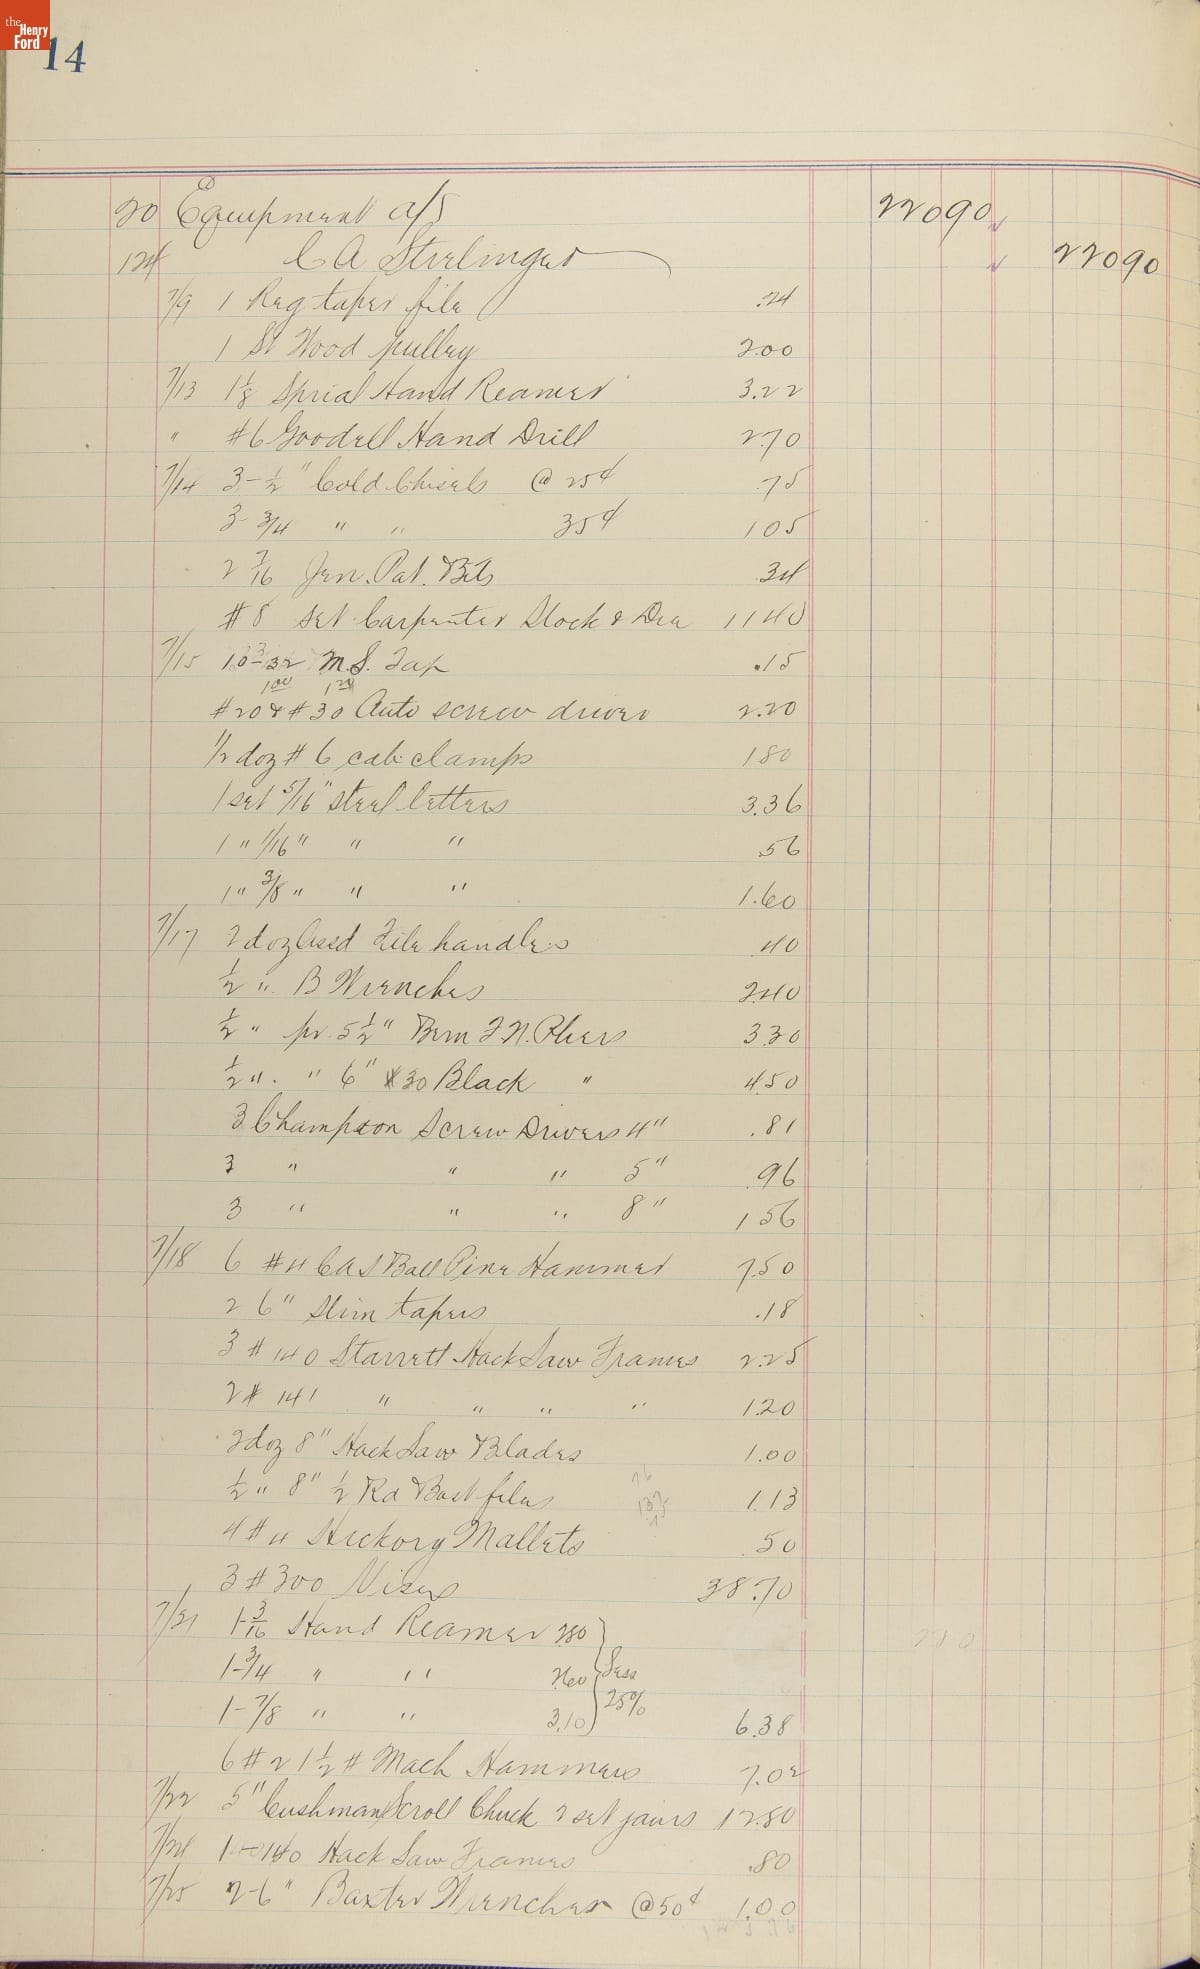 the
Henry
Ford
14
20 Equipment a/c 22090
124 C A Strelinger 22090
7/9 1 Reg taper file .24
1 St Wood pulley 2.00
7/13 1 1/8 Sprial Hand Reamer 3.22
" #6 Goodell Hand Drill 2.70
7/14 3-1/2" Cold Chisels @ 25¢ .75
3 3/4 " " 35¢ 105
2 7/16 Jen. Pat. Bits .34
#8 set Carpenter Stock & Die 1140
7/15 10-32 M.S. Tap .15
1.00 1.20
#20 & #30 Auto screw driver 2.20
1/2 doz #6 cab clamps 180
1 set 5/16" steel letters 3.36
1 " 1/16" " " .56
1 " 3/8" " " 1.60
7/17 2 doz Assd File handles .40
1/2 " B Wrenches 2.40
1/2 " pr. 5 1/2" Bern F.N. Pliers 3.30
1/2 " " 6" #30 Black " 4.50
3 Champion Screw Drivers 4" .81
3 " " " 5" .96
3 " " " 8" 156
7/18 6 #4 CAS Ball Pine Hammer 7.50
2 6" Slim tapers .18
3 #140 Starrett Hack Saw Frames 2.25
2 # 141 " " " " 1.20
2 doz 8" Hack Saw Blades 1.00
1/2 " 8" 1/2 Rd Bast files 1.13
4 #4 Hickory Mallets .50
3 #300 Vises 38.70
7/21 1-3/16 Hand Reamer 2.80
1-3/4 " " Less
1-7/8 " " 3.10 25% 6.38
6 #2 1 1/2 # Mach Hammers 7.02
7/22 5" Cushman Scroll Chuck 2 set jaws 12.80
7/24 1-140 Hack Saw Frames .80
7/25 2-6" Baxter Wrenches @50¢ 1.00